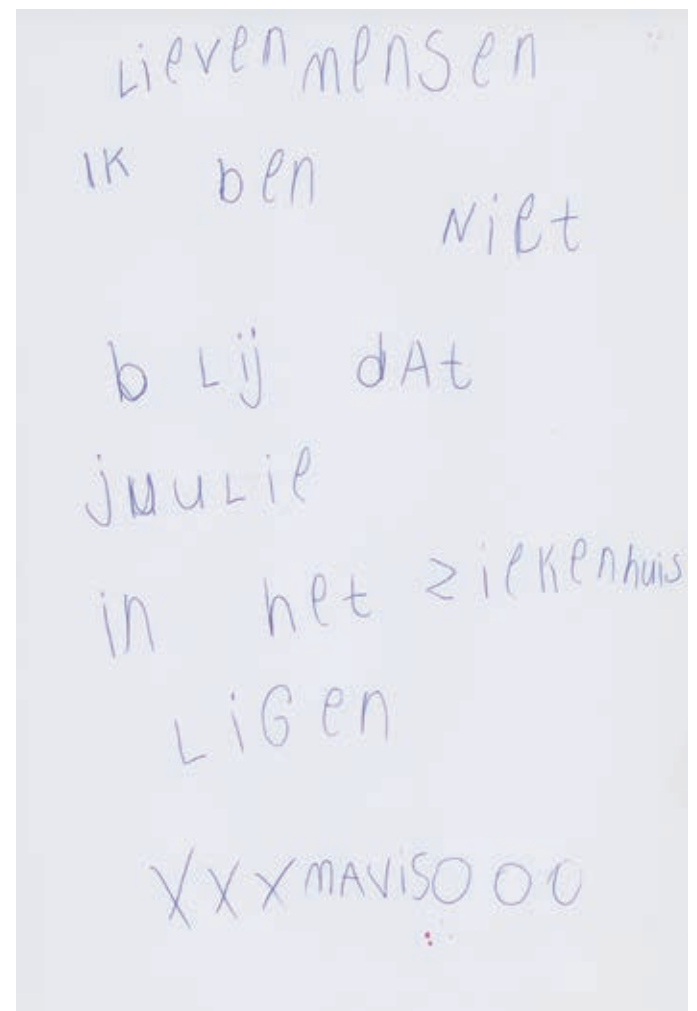 Lieven mensen
IK ben
Niet
bLij dAt
juuLie
in het ziekenhuis
LiGen
XXX mAViS OOO